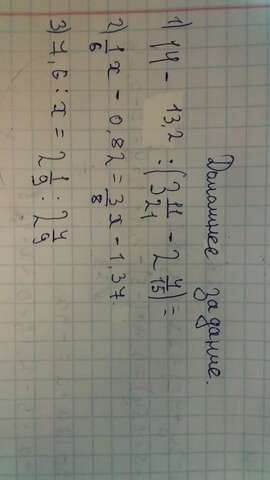 Домашнее задание.
1) 14 - 13,2 : (3 11/21 - 2 4/15) =
2) 1/6 x - 0,82 = 3/8 x - 1,37.
3) 4,6 : x = 2 1/9 : 2 4/9